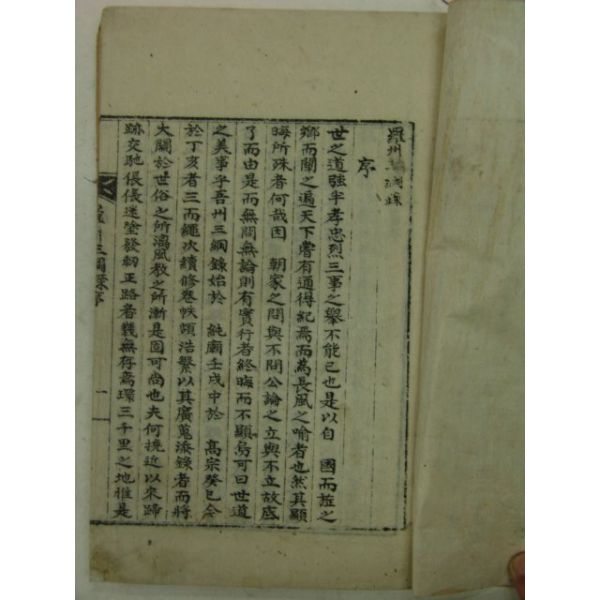 羅州三綱錄
序
世之道强半孝忠烈三事之擧不能已也是以自 國而旌之
鄉而闡之遍天下嘗有通得紀焉而蔿長風之喻者也然其顯
晦所殊者何哉因 朝家之問與不問公論之立與不立故惑
了而由是而無聞無論則有實行者終晦而不顯烏可曰世道
之美事乎吾州三綱錄始於 純廟壬戌中於 高宗癸巳今
於丁亥者三而繩次續修卷帙頗浩繁以其廣蒐添錄者而將
大關於世俗之所瀉風教之所漸是固可尚也夫何挽近以來歸
跡交馳倀倀迷塗發軔正路者幾無存焉環三千里之地惟是
羅州三綱錄序 一